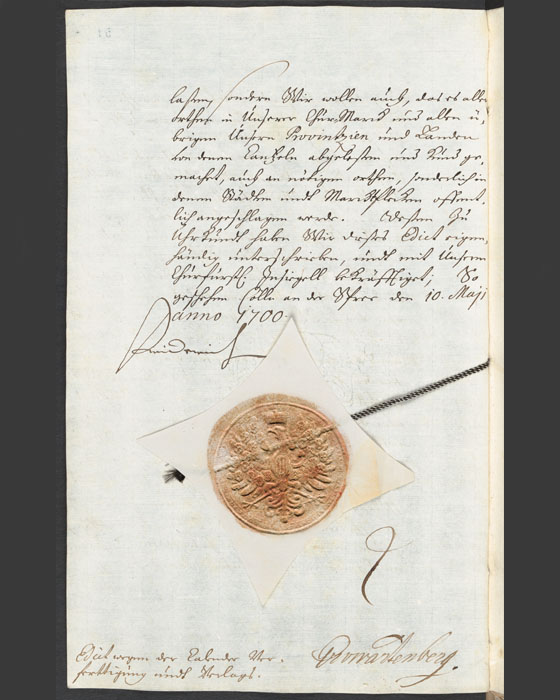 laßen, sondern Wir wollen auch, das es aller
orthen in Unserer Chur-Marck und allen ü-
brigen Unsern Provintzien und Landen
von denen Cantzeln abgelesen und kund ge-
machet, auch an nötigen orthen, sonderlich in
denen Städten undt Marcktflecken offent-
lich angeschlagen werde. Deßen Zu
Uhrkundt haben Wir dieses Edict eigen-
händig unterschrieben, undt mit Unserm
Churfürstl. Insiegell bekräfftiget; So
geschehen Cölln an der Spree den 10. Maji
anno 1700.
Friderich
Edict wegen der Calender Ver-
fertigung undt Verlags.
GvWartenberg.